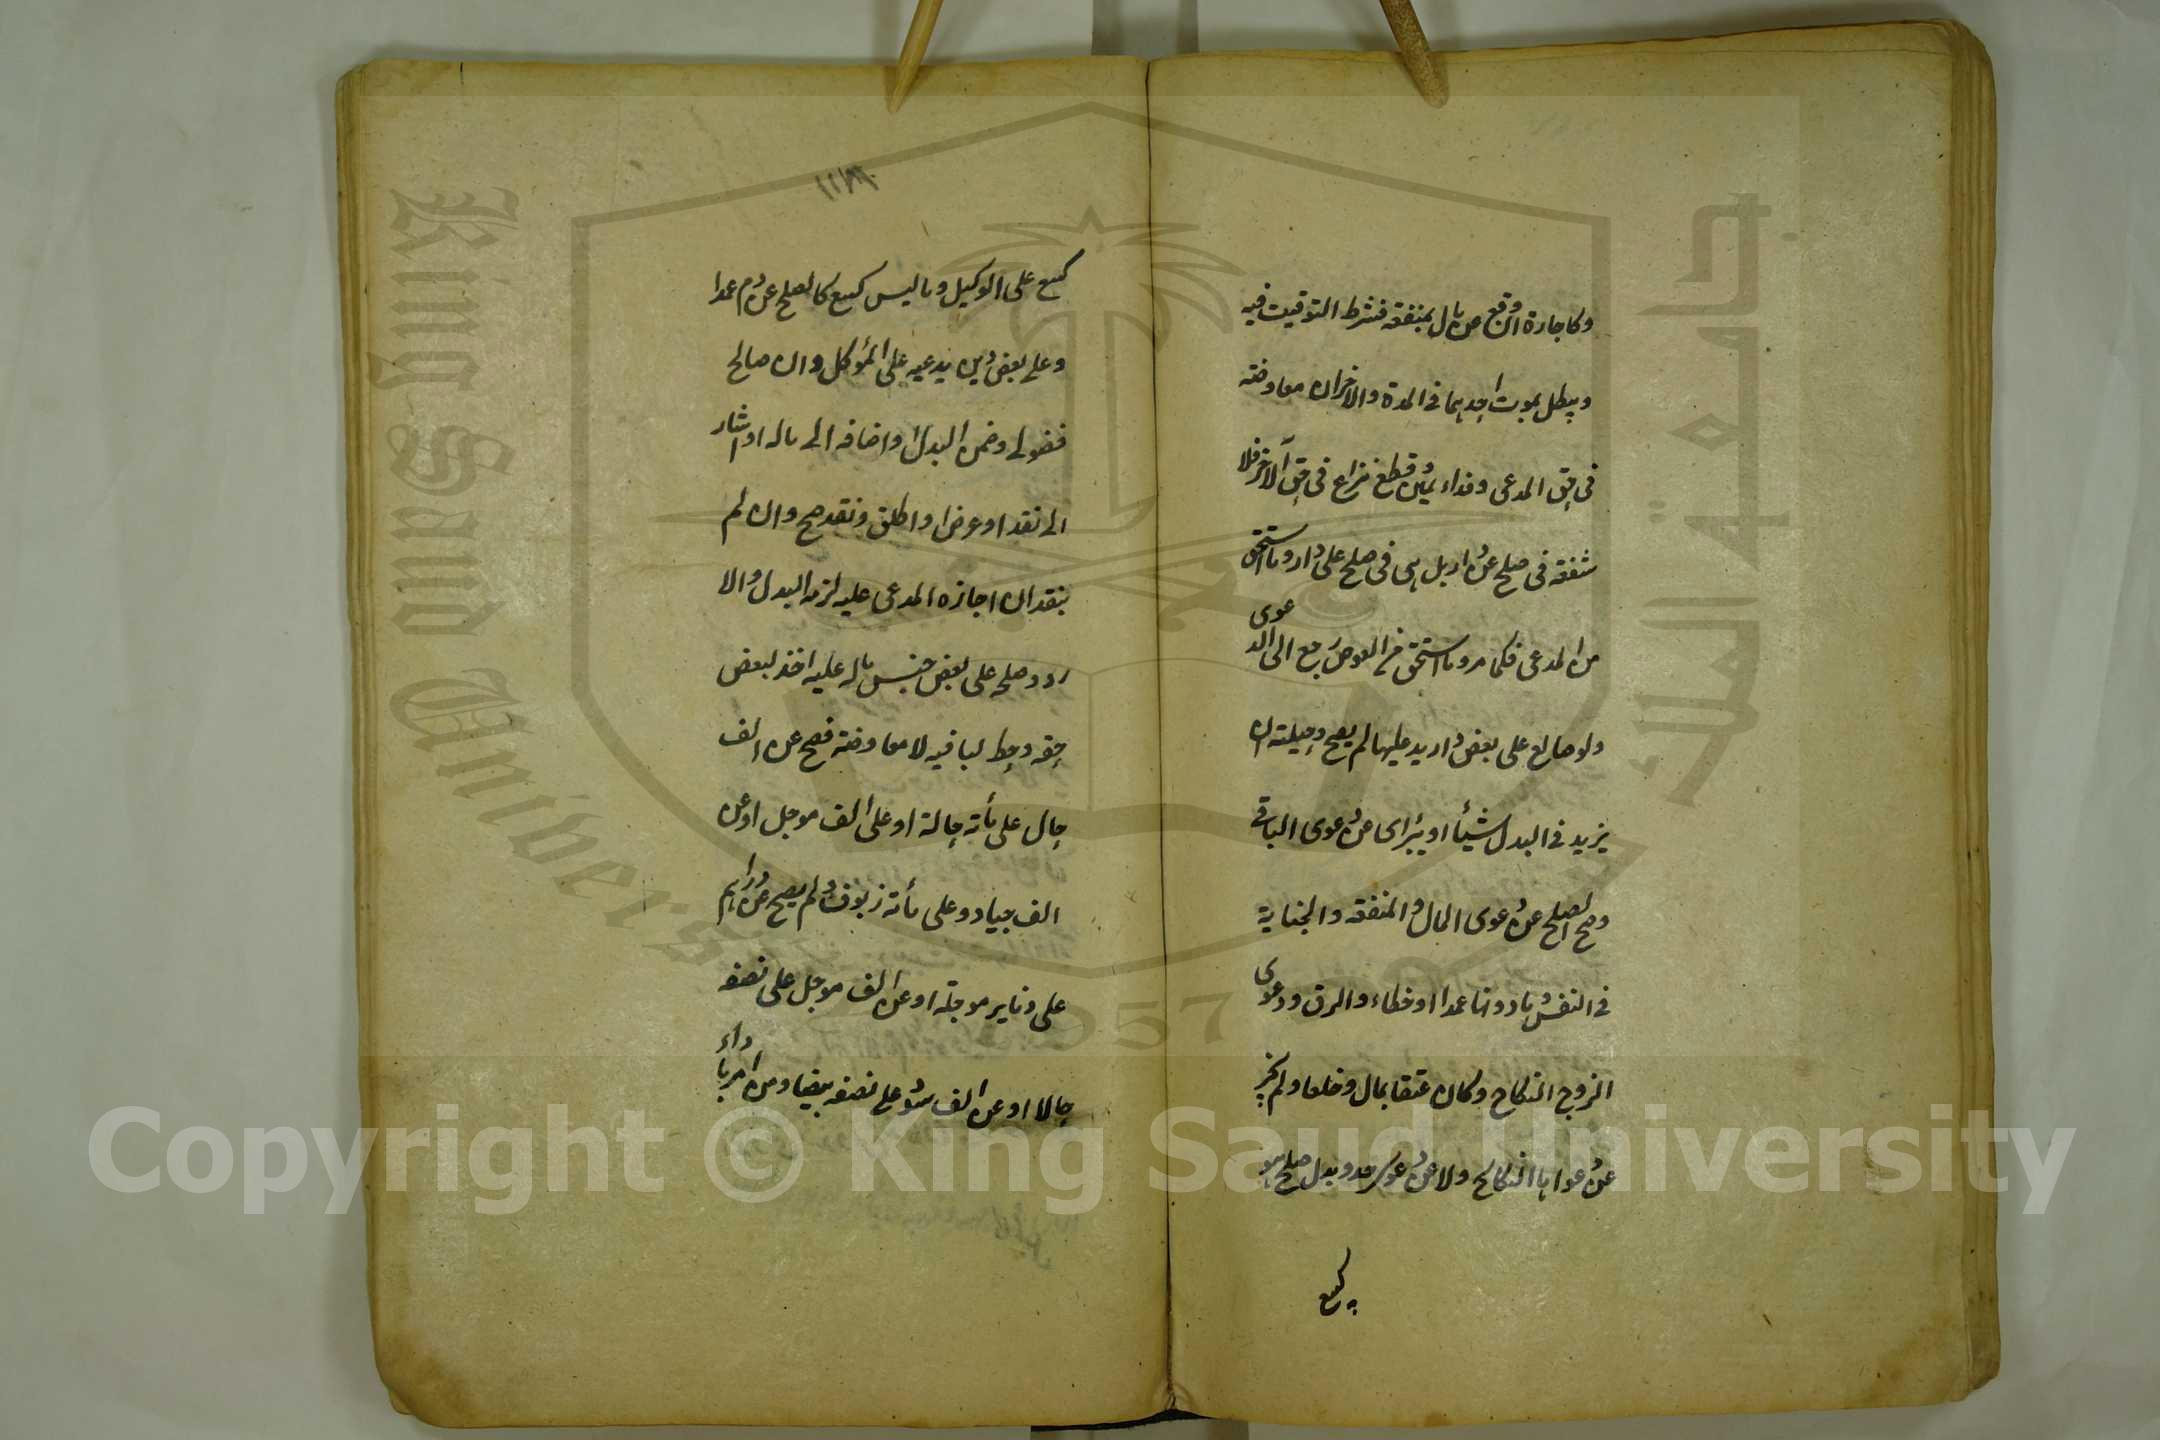 وكاجارة ان وقع عن مال بمنفقه فشرط التوقيت فيه
ويبطل بموت احدهما في المدة والاخران معاوضته
في حق المدعى وفداء يمين وقطع نزاع في حق الآخر فلا
شفقه في صلح عن دار بل هى في صلح على دار وما استحق
من المدعى فكما مر وما استحق من العوض رجع الى الدعوى
ولو صالح على بعض دار يدعيها لم يصح وحيلته ان
يزيد في البدل شيئا او يبراى عن دعوى الباقى
وصح الصلح عن دعوى المال والمنفقه والجناية
في النفس وما دونها عمدا او خطاء والرق ودعوى
الزوج النكاح وكان عتقا بمال وخلعا ولم يجز
عن دعواها النكاح ولا عن دعوى حد وبدل صلح هو
كبيع
كبيع على الوكيل وما ليس كبيع كالصلح عن دم عمدا
وعلى بعض دين يدعيه على المؤكل وان صالح
فضولى وضمن البدل او اضافه الى ماله او اشار
الى نقد او عرض او اطلق ونقد صح وان لم
ينقد ان اجازه المدعى عليه لزمه البدل والا
رد وصلحه على بعض جنس ماله عليه اخذ لبعض
حقه وحط لباقيه لا معاوضته فصح عن الف
حال على مأته حالة او على الف موجل او عن
الف جياد وعلى مأته زيوف ولم يصح عن دراهم
على دنانير موجلة او عن الف موجل على نصفه
حالا او عن الف سود على نصفه بيضا ومن امر باداء
King Saud University
جامعة الملك
1957
Copyright © King Saud University